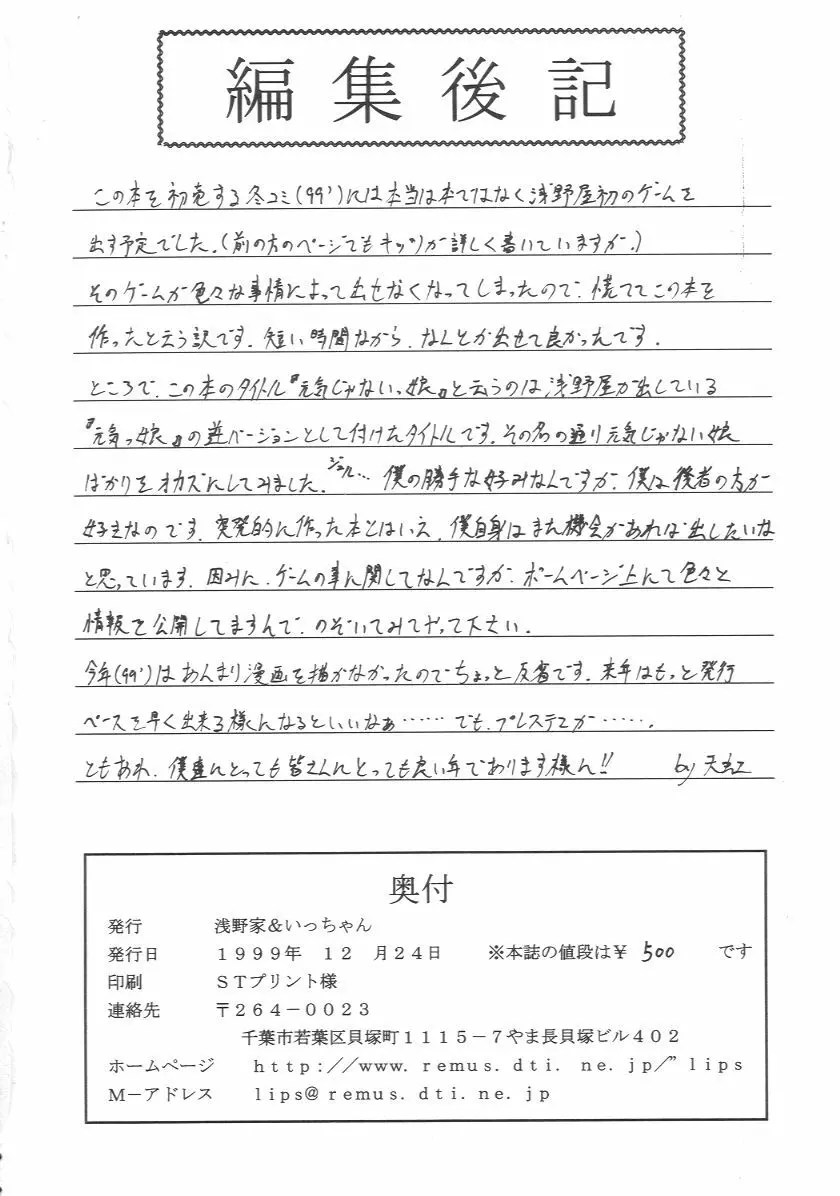 編集後記
この本を初売する冬コミ(99')には本当は本ではなく浅野屋初のゲームを
出す予定でした。(前の方のページでもキッツが詳しく書いていますが。)
そのゲームが色々な事情によって出せなくなってしまったので、慌ててこの本を
作ったと云う訳です。短い時間ながら、なんとか出せて良かったです。
ところで、この本のタイトル『元気じゃないっ娘』と云うのは浅野屋が出している
『元気っ娘』の逆バージョンとして付けたタイトルです。その名の通り元気じゃない娘
ばかりをオカズにしてみました。 … 僕の勝手な好みなんですが、僕は後者の方が
好きなのです。突発的に作った本とはいえ、僕自身はまた機会があれば出したいな
と思っています。因みに、ゲームの事に関してなんですが、ホームページ上にて色々と
情報を公開してますんで、のぞいてみてやって下さい。
今年(99')はあんまり漫画を描かなかったのでちょっと反省です。来年はもっと発行
ペースを早く出来る様になるといいなぁ……でも、プレステ2が……。
ともあれ、僕達にとっても皆さんにとっても良い年であります様に!! by 天虹
奥付
発行 浅野家&いっちゃん
発行日 1999年 12 月24日 ※本誌の値段は¥ 500 です
印刷 STプリント様
連絡先 〒264-0023
千葉市若葉区貝塚町1115-7やま長貝塚ビル402
ホームページ http://www.remus.dti.ne.jp/”lips
M-アドレス lips@remus.dti.ne.jp